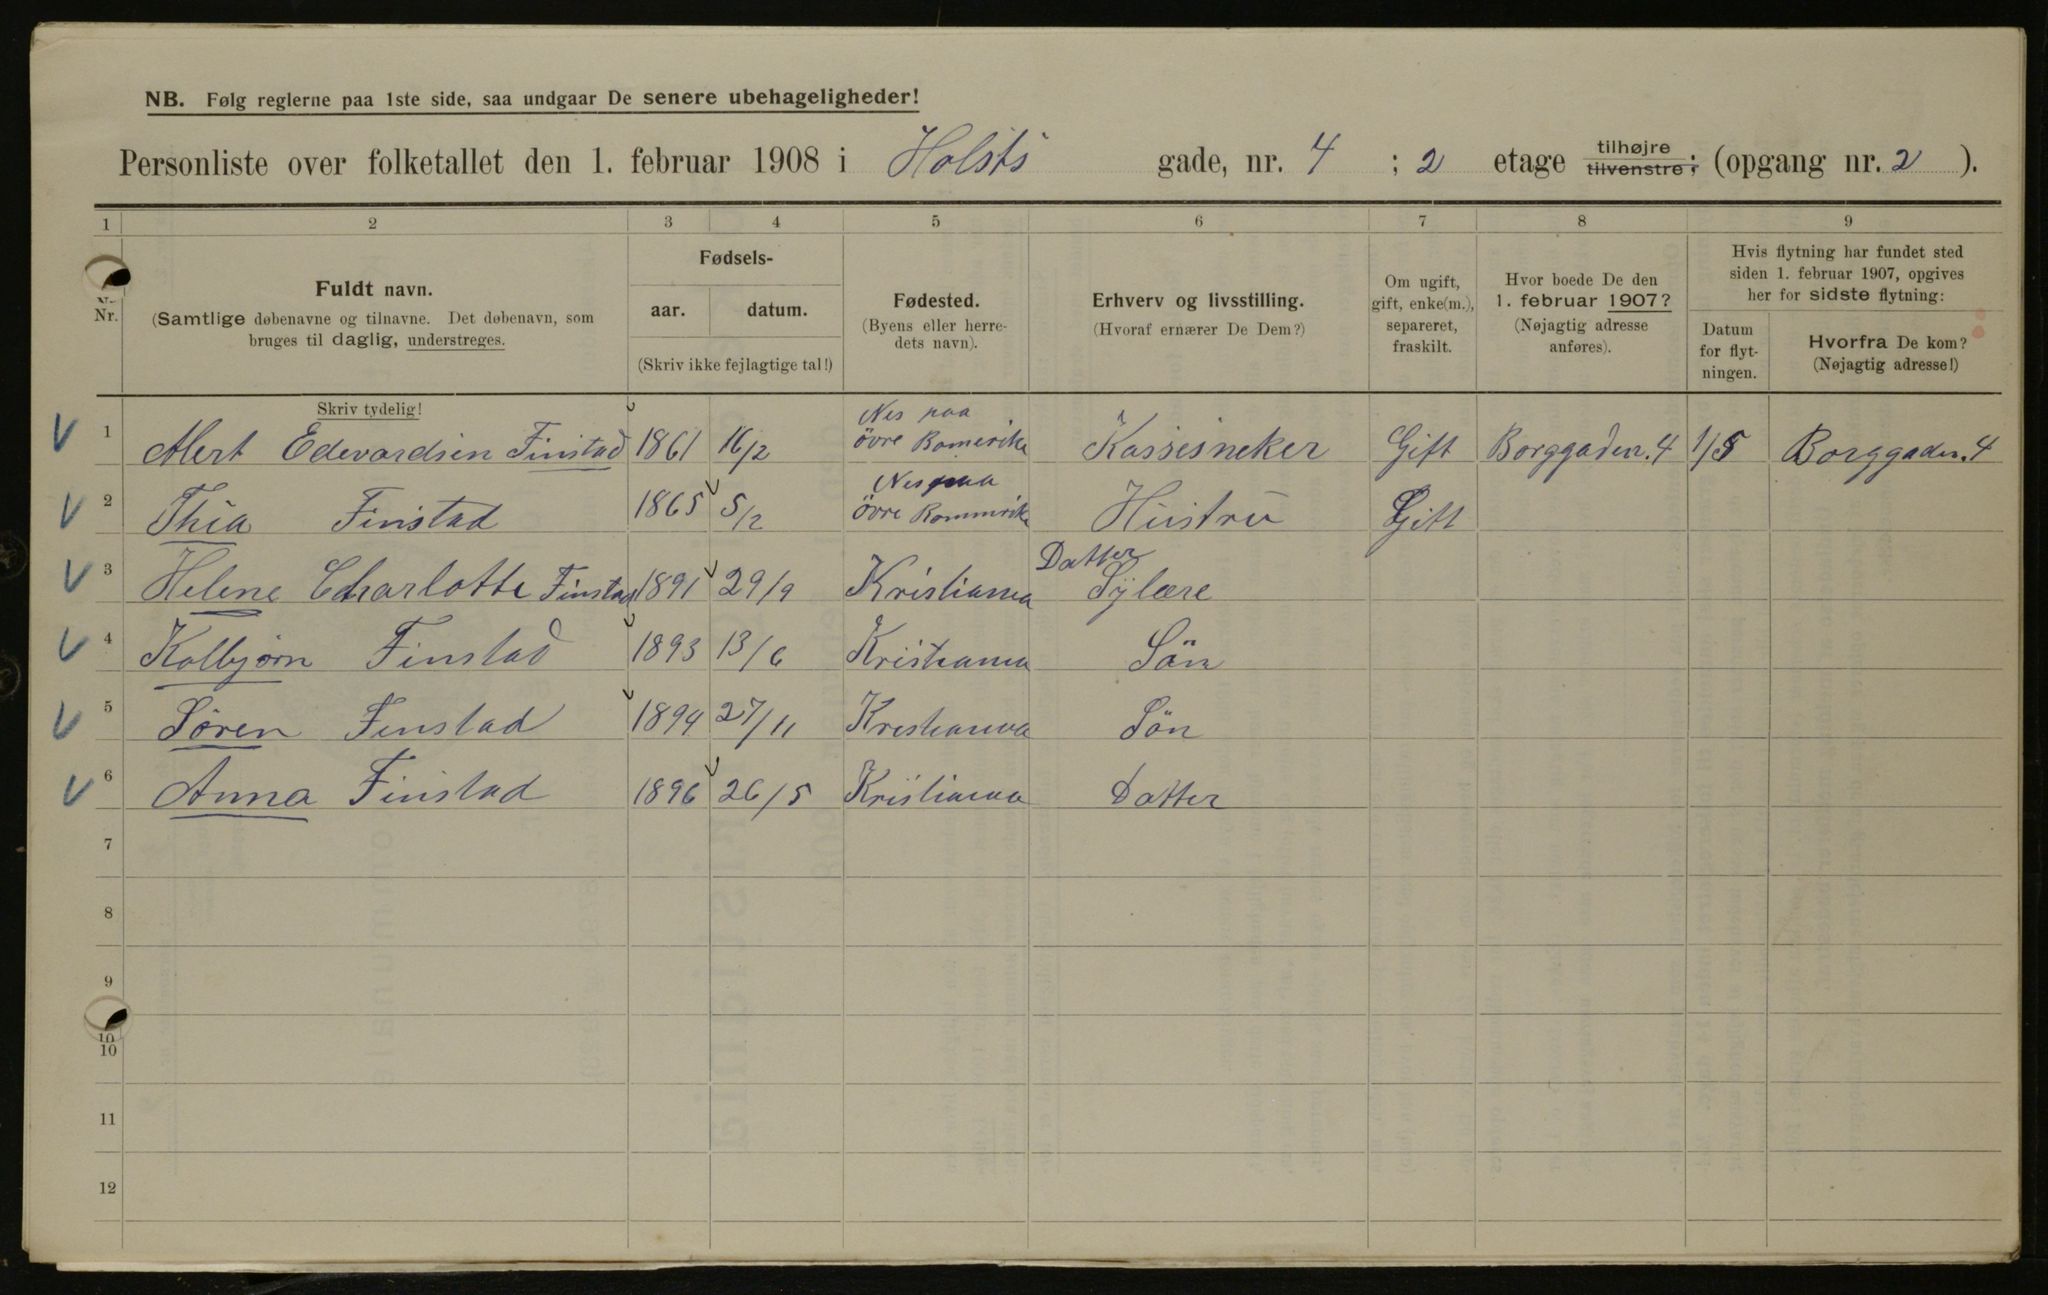 NB. Følg reglerne paa 1ste side, saa undgaar De senere ubehageligheder!
Personliste over folketallet den 1. februar 1908 i Holsts gade, nr. 4 ; 2 etage tilhøjre tilvenstre; (opgang nr. 2 ).
1 2 3 4 5 6 7 8 9
Nr.
Fuldt navn.
(Samtlige døbenavne og tilnavne. Det døbenavn, som
bruges til daglig, understreges.
Fødsels-
aar. datum.
(Skriv ikke fejlagtige tal!)
Fødested.
(Byens eller herre-
dets navn).
Erhverv og livsstilling.
(Hvoraf ernærer De Dem?)
Om ugift,
gift, enke(m.),
separeret,
fraskilt.
Hvor boede De den
1. februar 1907?
(Nøjagtig adresse
anføres).
Hvis flytning har fundet sted
siden 1. februar 1907, opgives
her for sidste flytning:
Datum
for flyt-
ningen.
Hvorfra De kom?
(Nøjagtig adresse!)
Skriv tydelig!
1 Alert Edevardsen Finstad 1861 16/2 Nes paa övre Romerike Kassesneker Gift Borggaden. 4 1/5 Borggaden. 4
2 Thia Finstad 1865 5/2 Nes paa övre Rommerike Hustru Gift
3 Helene Charlotte Finstad 1891 29/9 Kristiania Datter Sylære
4 Kolbjørn Finstad 1893 13/6 Kristiania Sön
5 Søren Finstad 1894 27/11 Kristiania Sön
6 Anna Finstad 1896 26/5 Kristiania Datter
7
8
9
10
10
11
12